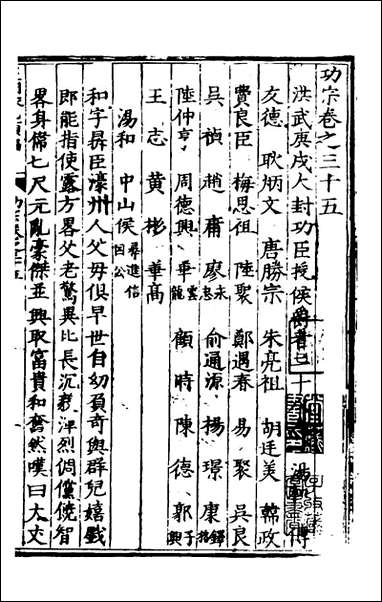 功宗卷之三十五
洪武庚戌大封功臣授侯爵者二十
友德　耿炳文　唐勝宗　朱亮祖　胡廷美　韓政
費良臣　梅思祖　陸聚　鄭遇春　易聚　吳良
吳禎　趙庸　廖永忠　俞通源　楊璟　康鐸
陸仲亨　周德興　華雲龍　顧時　陳德　郭子興
王志　黃彬　華高
湯和　中山侯尋進信国公
和字鼎臣濠州人父母俱早世自幼負奇與群兒嬉戲
即能指使露方畧父老驚異比長沉毅洋烈倜儻饒智
畧身僃七尺元亂豪傑並興取富貴和奮然嘆曰大丈